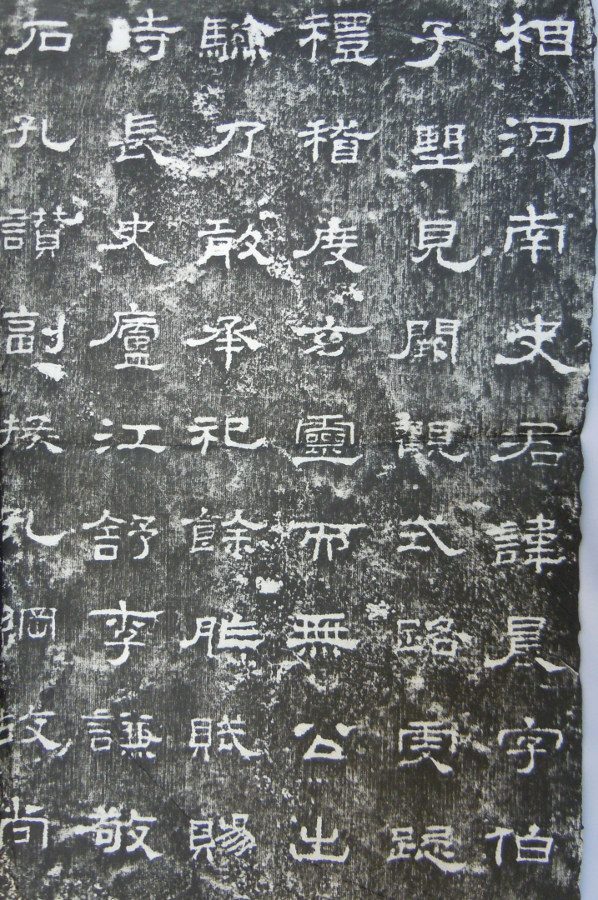 相河南史君諱晨字伯
子望見闕觀式路虔跽
禮稽度玄靈而無公出
驗乃敢承祀餘胙賦賜
時長史廬江舒李謙敬
石孔讚副掾孔綱故尚